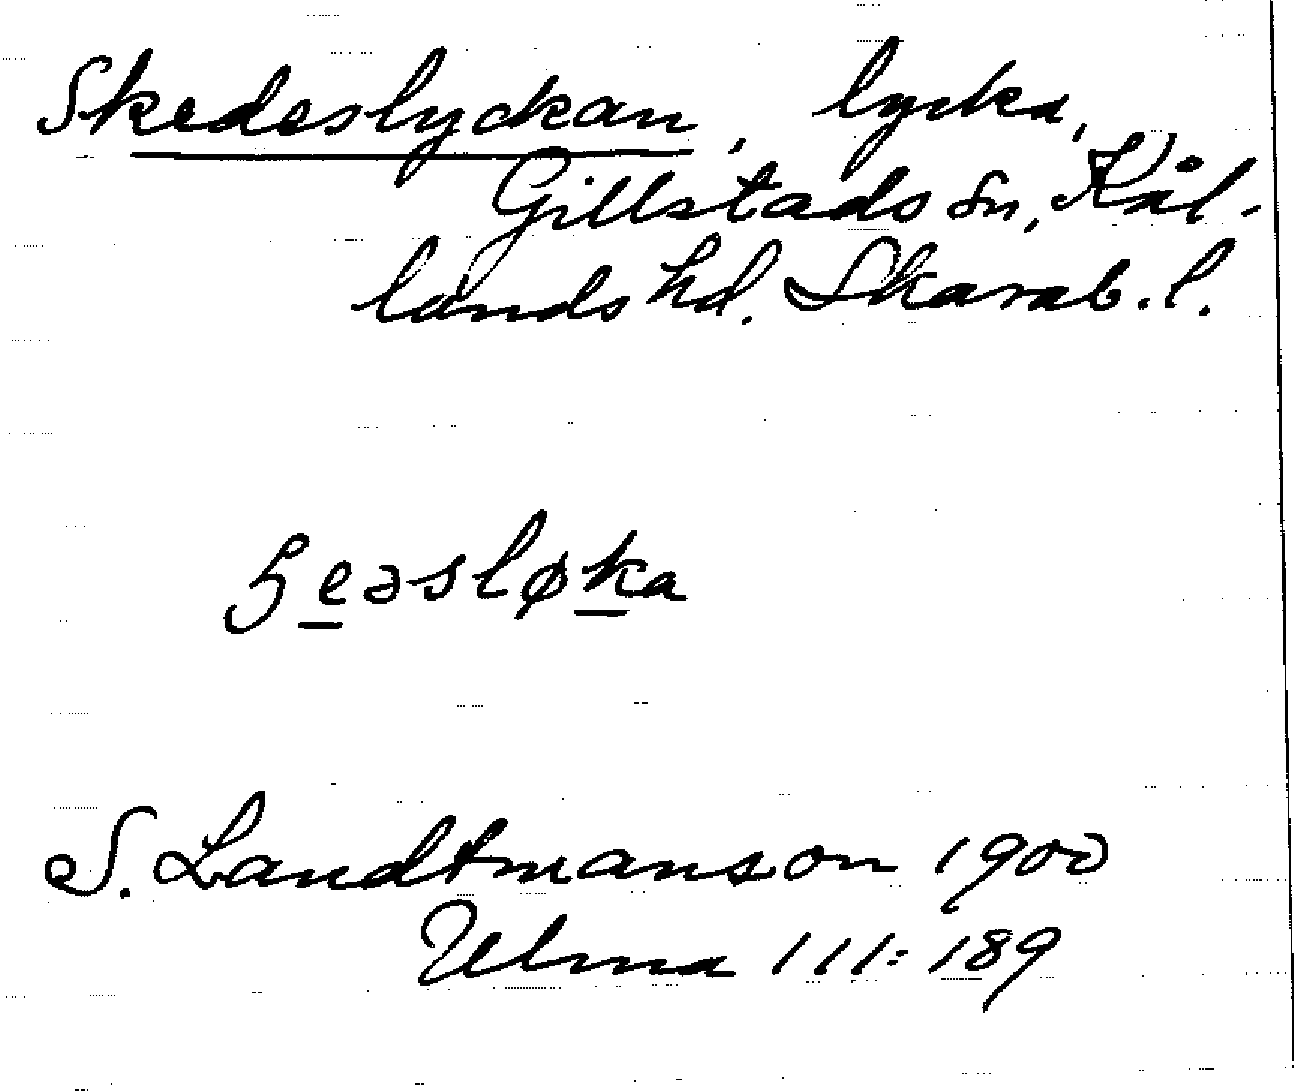 Skedeslyckan, lycka,
Gillstads sn, Kål-
lands hd. Skarab. l.
ɧeəsløka
S. Landtmanson 1900
Ulma 111:189